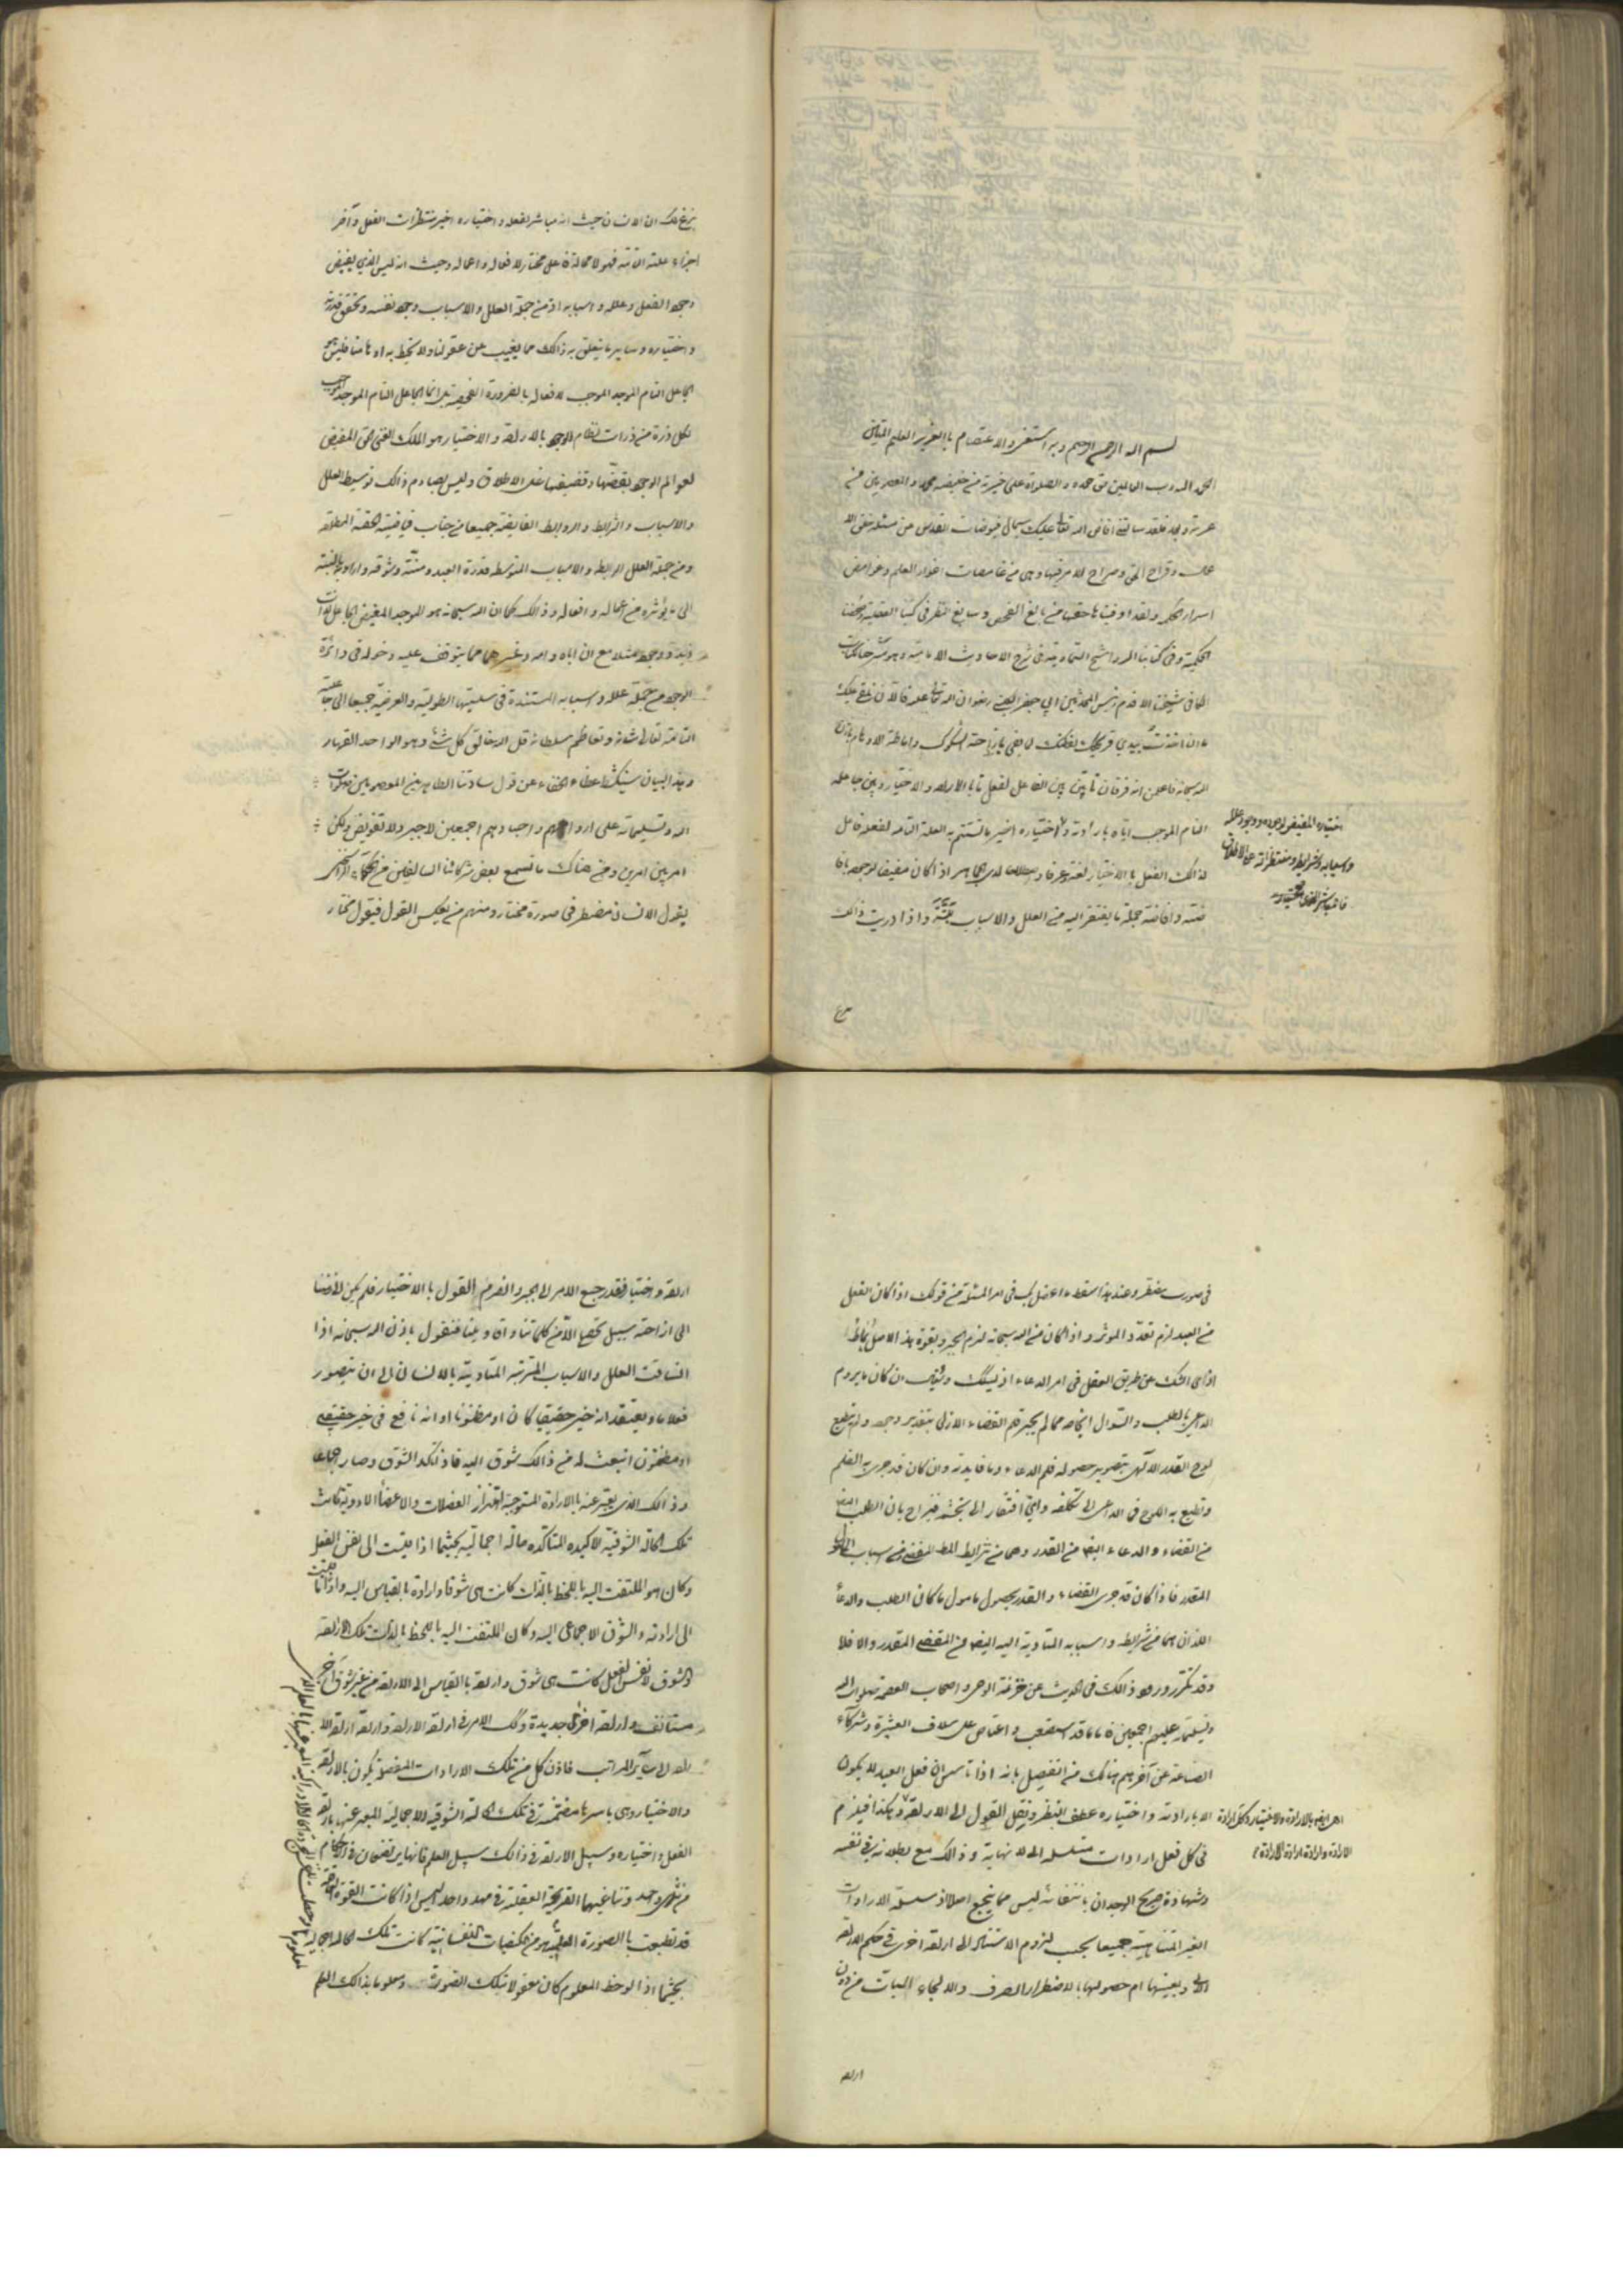 بسم الله الرحمن الرحيم وبه استعين والاعتصام بالعزيز العليم
الحمد لله رب العالمين حق حمده والصلوة على خيرته من خليقته محمد والمعصومين من
عترته وبعد فلقد سالتني افاض الله تعالى عليك سجال فيوضات القدس عن مسئلة خلق الا
عمال وقراح الحق وصراح الامر فيها وهي من غامضات اغوار العلم وغوامض
اسرار الحكمة ولقد اوفيناها حقها من بالغ الفحص وسابغ النظر في كتبنا العقلية وصحفنا
الحكمية وفي كتابنا الرواشح السماوية في شرح الاحاديث الامامية وهو شرح
الكافي لشيخنا الاقدم رئيس المحدثين ابي جعفر الكليني رضوان الله تعالى عليه فالآن نلقي عليك
ما ان اخذت بيدي قريحتك يفطنك لا يغى بازاحة الشكوك واماطة الاوهام باذن
الله سبحانه فاعلمن انه فرقان ما بين بين الفاعل لفعل ما بالارادة والاختيار وبين جاعله
التام الموجب اياه بارادته واختياره اخير ما تستتم به العلة التامة لفعله فاعل
لذلك الفعل بالاختيار لغة وعرفا واصطلاحا لدى الجماهير اذا كان مفيضا لوجوده بافا
ضته وافاضة جملة ما يفتقر اليه من العلل والاسباب واذا دريت ذلك
اختياره المفيض لوجوده ووجود علله
واسبابه وشرايطه ومنتظراته على الاطلاق
فالمباشر الذي
ع
بزغ لك ان الانسان حيث انه مباشر لفعله واختياره اخير منتظرات الفعل وآخر
اجزاء علته التامة فهو لا محالة فاعل مختار لافعاله واعماله وحيث انه ليس الذي يفيض
وجود الفعل وعلله واسبابه اذ من جملة العلل والاسباب وجود نفسه وتحقق قدرته
واختياره وساير ما يتعلق به ذلك مما يغيب عن عقولنا ولا يحيط به اوهامنا فليس هو
الجاعل التام الموجد الموجب لافعاله بالضرورة الفحصية بل انما الجاعل التام الموجد الموجب
لكل ذرة من ذرات نظام الوجود بالارادة والاختيار هو الملك الغني الحق المفيض
لعوالم الوجود بقضها وقضيضها على الاطلاق وليس يصادم ذلك توسيط العلل
والاسباب والشرايط والروابط الفايضة جميعا من جناب فياضيته الحقة المطلقة
ومن جملة العلل الرابطة والاسباب المتوسطة قدرة العبد ومنته وشوقه وارادته بالنسبة
الى ما يؤثره من اعماله وافعاله وذلك كما ان الله سبحانه هو الموجد المفيض الجاعل لذات
زيد ووجوده مثلا مع ان اباه وامه وغيرهما مما يتوقف عليه دخوله في دائرة
الوجود من جملة علله واسبابه المستندة في سلسلتيها الطولية والعرضية جميعا الى جاعلية
التامة تعالى شانه وتعاظم سلطانه قل الله خالق كل شئ وهو الواحد القهار
وبهذا البيان ينكشف غطاء الخفاء عن قول ساداتنا الطاهرين المعصومين صلوات
الله وتسليماته على ارواحهم واجسادهم اجمعين لا جبر ولا تفويض ولكن
امر بين امرين ومن هناك ما تسمع بعض شركائنا السالفين من الحكماء الراسخين
يقول الانسان مضطر في صورة مختار ومنهم من يعكس القول فيقول مختار
في صورت مضطر وعند هذا سقط ما اعضل بك في امر المسئلة من قولك اذا كان الفعل
من العبد لزم تعدد المؤثر واذا كان من الله سبحانه لزم الجبر وبقوة هذا الاصل
الحك على طريق العقل في امر الدعاء اذ ليشكك ان كان ما يروم
الداعي بالطلب والسوال انجاحه مما لم يجر قلم القضاء الازلي بتقدير وجوده ولم ينطبع
لوح القدر الالهي بتصوير حصوله فلم الدعاء وما فايدته وان كان قد جرى به القلم
وتطبع به اللوح فما الداعي الى تكلفه واي افتقار الى تجشمه فيزاح بان الطلب ايضا
من القضاء والدعاء ايضا من القدر وهما من شرايط المطلوب المقضي ومن اسباب المامول
المقدر فاذا كان قد جرى القضاء والقدر بحصول مامول ما كان الطلب والدعاء
اللذان هما من شرايطه واسبابه المتادية اليه ايضا من المقضي المقدر والا فلا
وقد تكرر ورود ذلك في الحديث عن خزنة الوحي واصحاب العصمة صلوات الله
وتسليماته عليهم اجمعين فاما ما قد استصعب واعتاص على سلاف العشيرة وشركاء
الصناعة عن آخرهم هناك من التفصيل بانه اذا تاسس ان فعل العبد لا يكون
الا بارادته واختياره عطف النظر ونقل القول الى الارادة وهكذا فيلزم
في كل فعل ارادات متسلسلة الى لا نهاية وذلك مع بطلانه في نفسه
وشهادة صريح الوجدان بانتفائه ليس مما ينجع اصلا اذ سلسلة الارادات
الغير المتناهية جميعا يجب لزوم الاستناد الى ارادة اخرى في حكم الارادة
الاولى وبعينها ام حصولها بالاضطرار الصرف والالجاء البات من دون
اهي ايضا بالارادة والاختيار وكل ارادة
الارادة وارادة ارادة الارادة
ارادة
ارادة واختيار فقد رجع الامر الى الجبر وانصرم القول بالاختيار فلم يكن لاحد منا
الى ازاحته سبيل تحصيل الا من كلماتنا واقاويلنا فنقول باذن الله سبحانه اذا
انساقت العلل والاسباب المترتبة المتادية بالانسان الى ان يتصور
فعلا ما ويعتقد انه خير حقيقيا كان او مظنونا او انه نافع في خير حقيقي
او مظنون انبعث له من ذلك شوق اليه فاذا تاكد الشوق وصار جماعا
وذلك الذي يعبر عنه بالارادة المستوجبة اهتزاز العضلات والاعضاء الادوية كانت
تلك الحالة الشوقية الاكيدة المتاكدة حالة اجمالية بحيثما اذا قيست الى نفس الفعل
وكان هو الملتفت اليه باللحظ بالذات كانت هي شوقا وارادة بالقياس اليه واذا قيست
الى ارادته والشوق الاجماعي اليه وكان الملتفت اليه باللحظ بالذات تلك الارادة
والشوق لا نفس الفعل كانت هي شوق وارادة بالقياس الى الارادة من غير شوق آخر
مستانف وارادة اخرى جديدة وكذلك الامر في ارادة الارادة وارادة ارادة الا
رادة الى ساير المراتب فاذن كل من تلك الارادات المفصلة تكون بالارادة
والاختيار وهي باسرها مضمنة في تلك الحالة الشوقية الاجمالية المعبر عنها بارادة
الفعل واختياره وسبيل الارادة في ذلك سبيل العلم فانهما يرتضعان في الاحكام
من ثدي واحد وتناغيهما القريحة العقلية في مهد واحد اليس اذا كانت القوة
قد تطبعت بالصورة العلمية كانت تلك الحالة
بحيثما اذا لوحظ المعلوم كان معقولا بتلك الصورة ومعلوما بذلك العلم